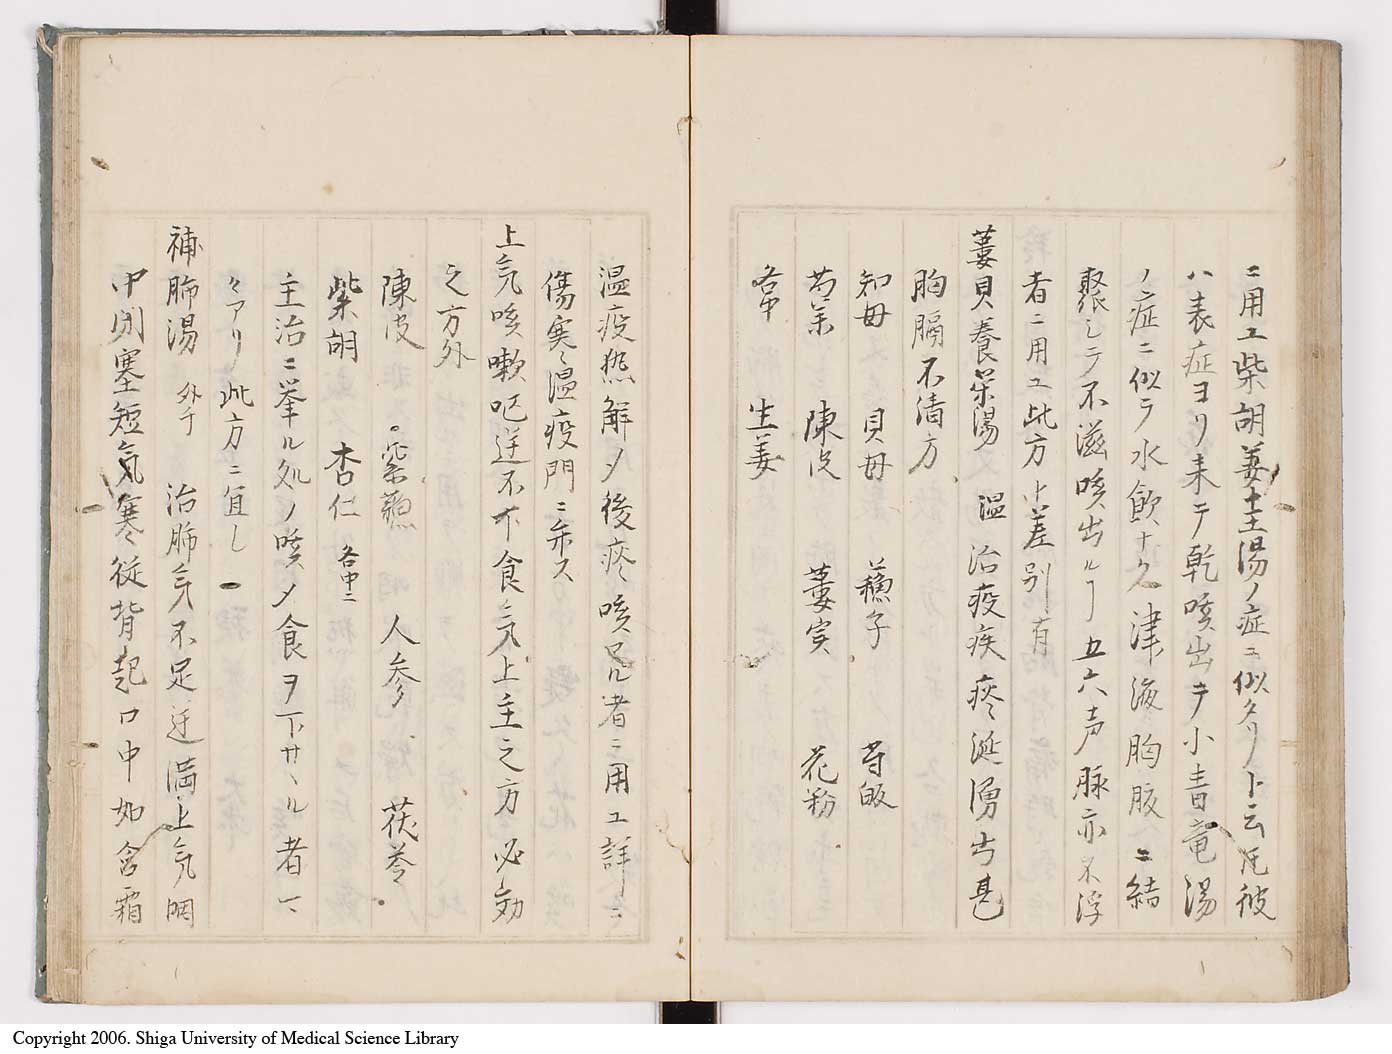 ニ用ユ柴胡姜圭湯ノ症ニ似タリト云尼彼
ハ表症ヨリ来テ乾咳出テ小青竜湯
ノ症ニ似テ水飲ナク津液胸脇ニ結
聚シテ不滋咳出ルヿ五六声脉亦不浮
者ニ用ユ此方ト差別有
蔞貝養栄湯 温 治疫疾痰涎湧甚
胸膈不清方
知母 貝母 蘓子 芍
芍薬 陳皮 蔞実 花粉
各中 生姜
温疫热解メ後痰咳尼ル者ニ用ユ詳ニ
傷寒温疫門ニ弁ス
上気咳嗽呕逆不下食気上主之方必効
之方外
陳皮 紫蘓 人参 茯苓
柴胡 杏仁 各中ニ
主治ニ挙ル処ノ咳メ食ヲ下サヽル者一
々アリ此方ニ宜し
補肺湯 外千 治肺気不足逆満上気咽
中闭塞短気寒従背起口中如含霜
Copyright 2006. Shiga University of Medical Science Library